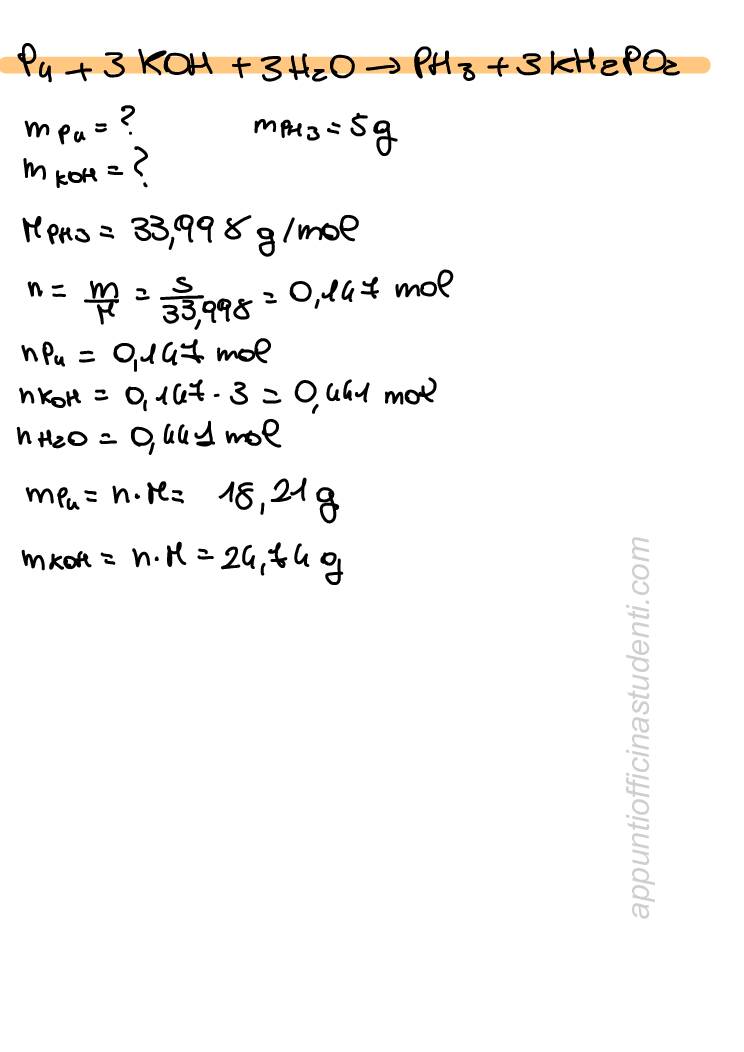 P4 + 3 KOH + 3 H2O → PH3 + 3 KH2PO2
m P4 = ? m PH3 = 5g
m KOH = ?
M PH3 = 33,998 g/mol
n = m/M = 5/33,998 = 0,147 mol
n P4 = 0,147 mol
n KOH = 0,147 · 3 = 0,441 mol
n H2O = 0,441 mol
m P4 = n · M = 18,21 g
m KOH = n · M = 24,74 g
appuntiofficinastudenti.com